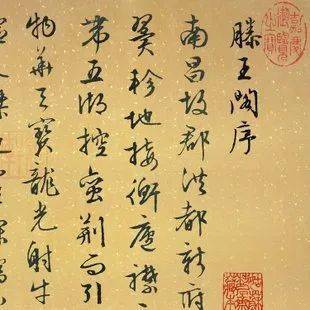 嘉慶御覽之寶
滕王閣序
南昌故郡洪都新府
翼軫地接衡廬襟
帶五湖控蠻荊而引
物華天寶龍光射牛